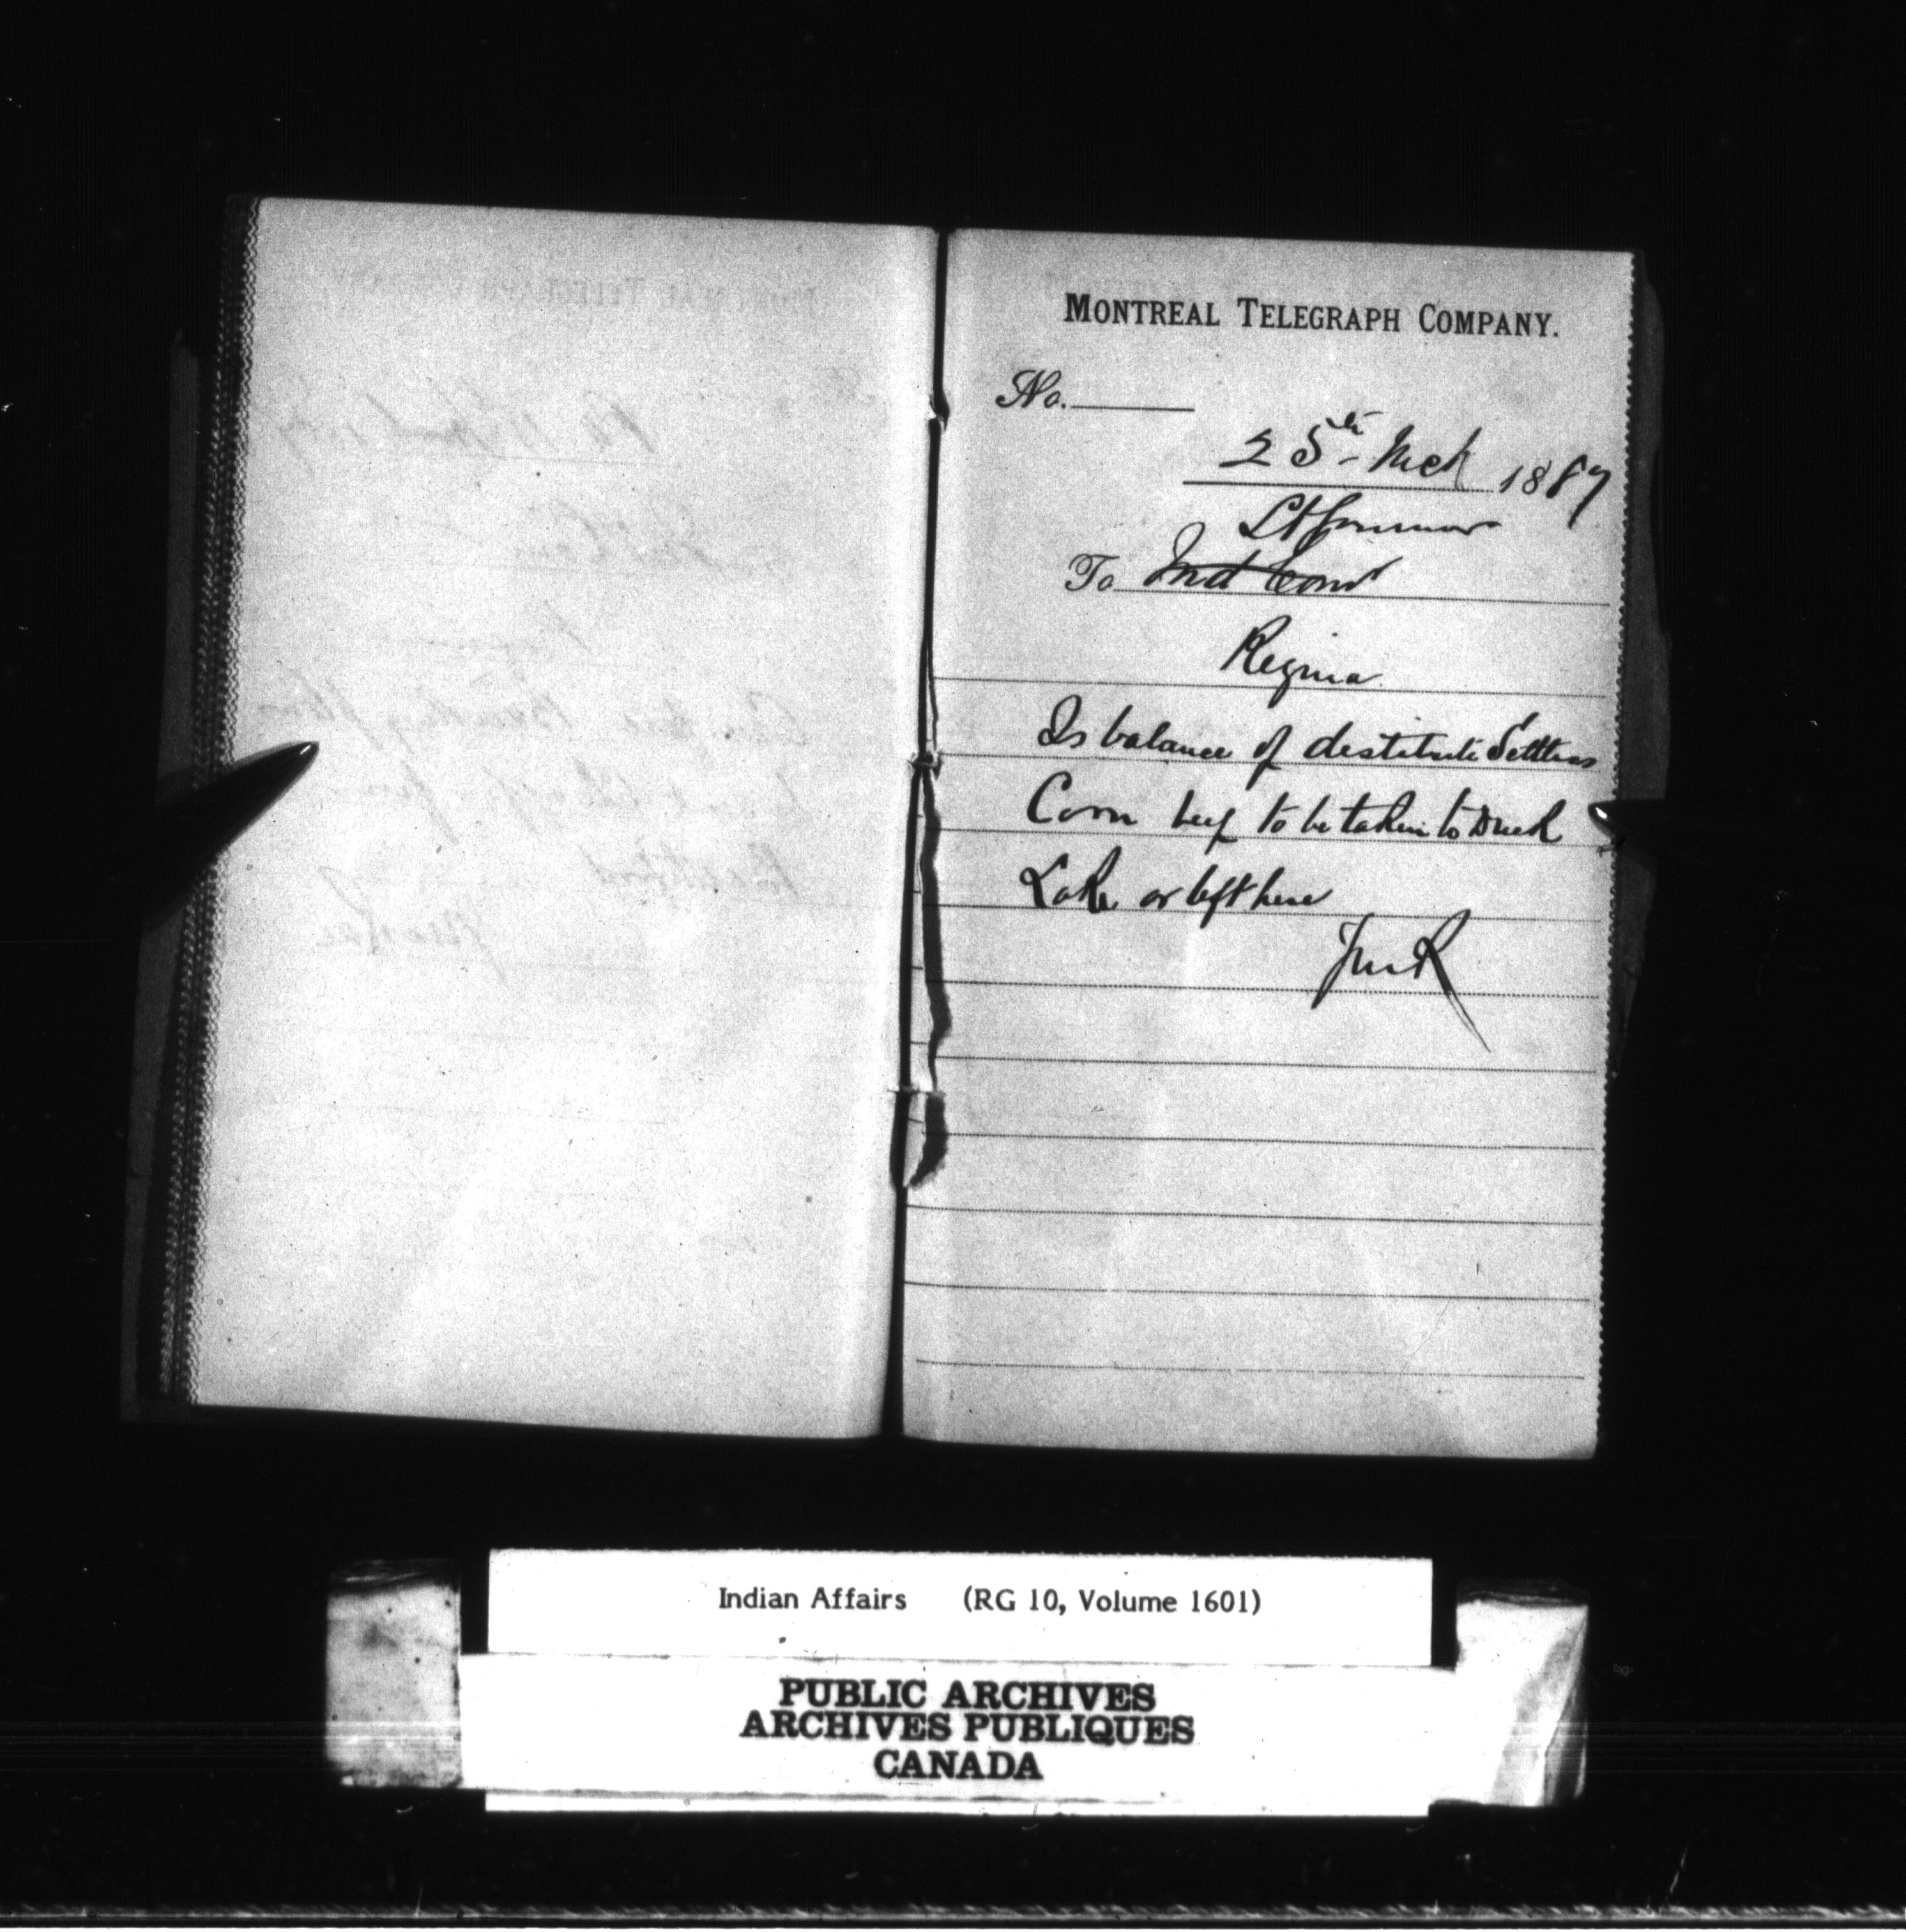 MONTREAL TELEGRAPH COMPANY.
No.
25th Mch 1887
Lt Governor
To Ind Com
Regina
Is balance of destitute Settlers
Corn beef to be taken to Duck
Lake or left here
JMR
Indian Affairs (RG 10, Volume 1601)
PUBLIC ARCHIVES
ARCHIVES PUBLIQUES
CANADA